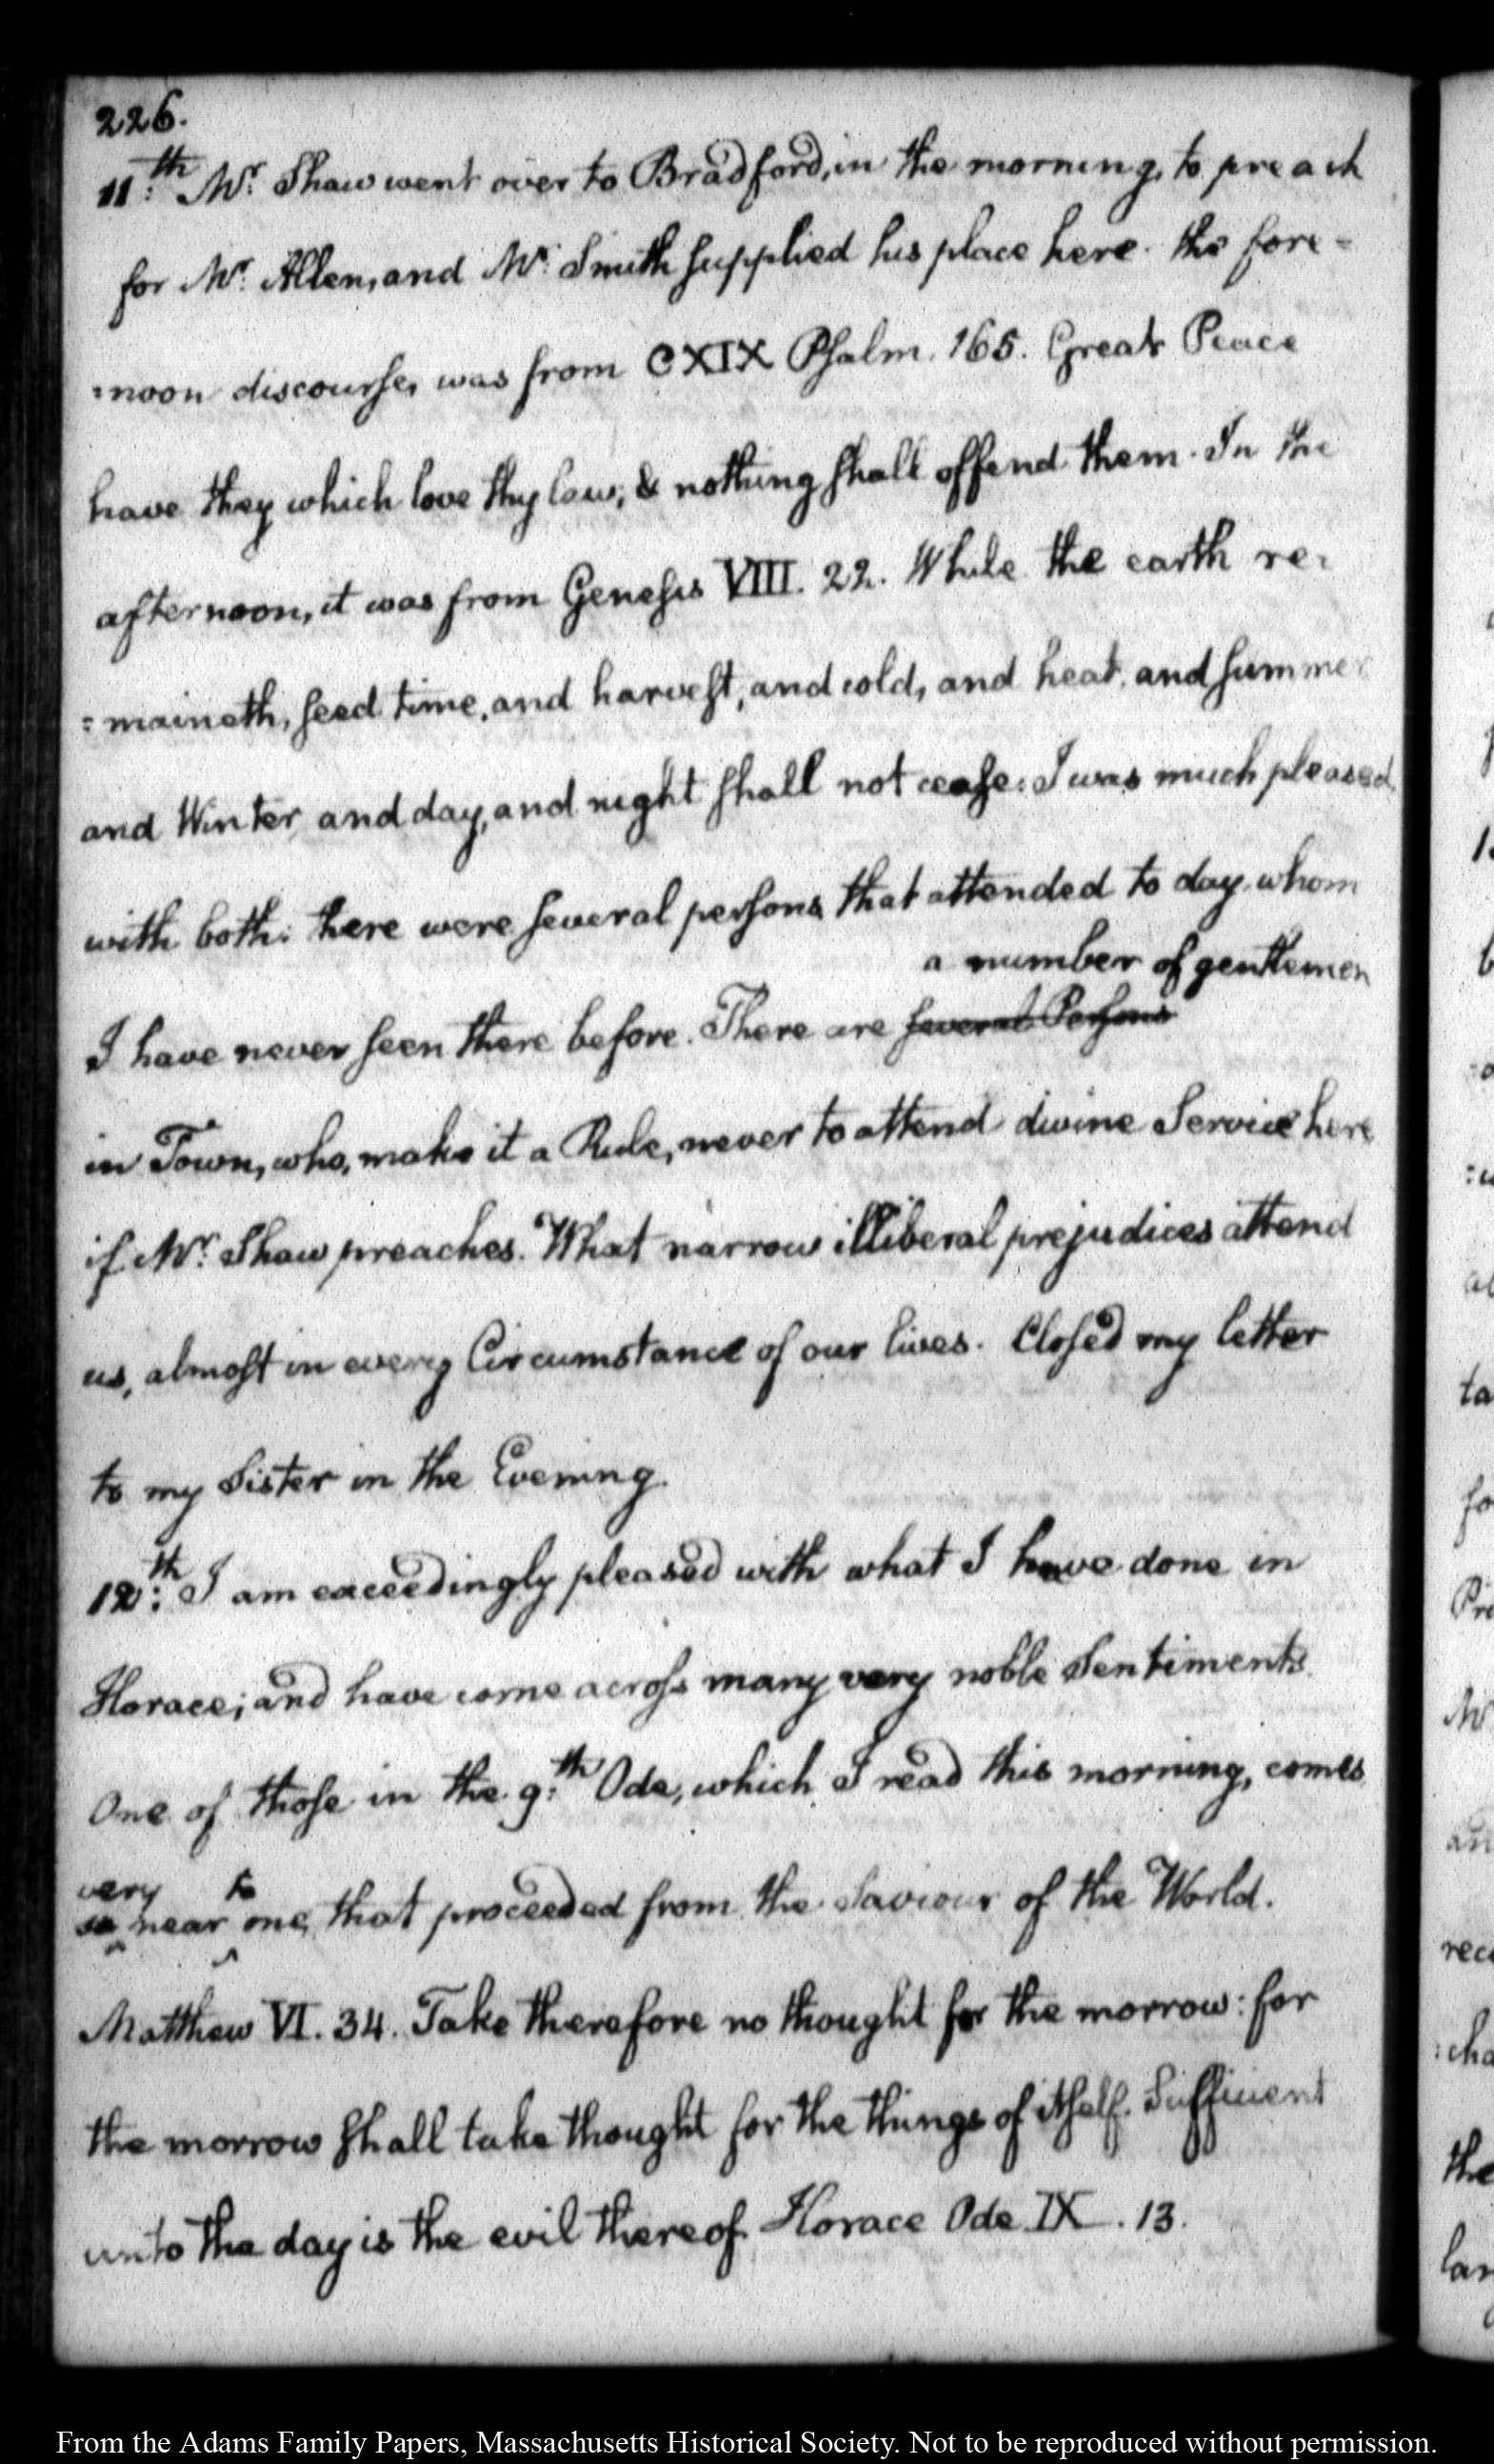 226.
11:th Mr. Shaw went over to Bradford, in the morning, to preach
for Mr. Allen, and Mr. Smith supplied his place here. the fore-
=noon discourse, was from CXIX Psalm. 165. Great Peace
have they which love thy law; & nothing shall offend them. In the
afternoon, it was from Genesis VIII. 22. While the earth re=
=maineth, seed time, and harvest, and cold, and heat, and summer
and Winter, and day, and night shall not cease. I was much pleased
with both. there were several persons that attended to day whom
a number of gentlemen
I have never seen there before. There are several Persons
in Town, who, make it a Rule, never to attend divine Service here
if Mr. Shaw preaches. What narrow illiberal prejudices attend
us, almost in every Circumstance of our lives. Closed my letter
to my Sister in the Evening.
12:th I am exceedingly pleased with what I have done in
Horace; and have come across many very noble Sentiments.
One of those in the 9:th Ode, which I read this morning, comes
very to
so near one, that proceeded from the Saviour of the World.
Matthew VI. 34. Take therefore no thought for the morrow: for
the morrow shall take thought for the things of itself. Sufficient
unto the day is the evil thereof. Horace Ode IX. 13.
From the Adams Family Papers, Massachusetts Historical Society. Not to be reproduced without permission.